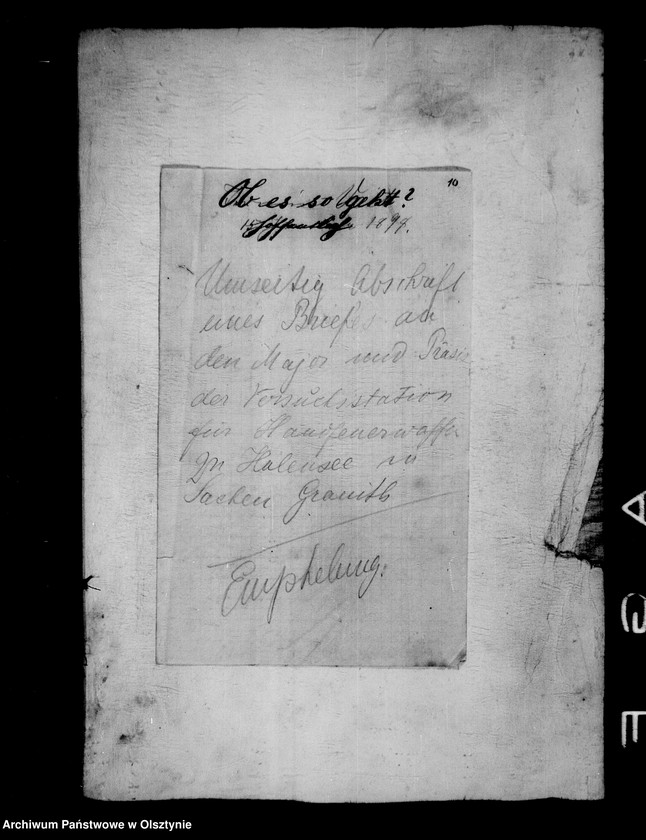 10
Ob es so geht?
1898.
Umseitig Abschrift
eines Briefes an
den Major und Präsi
der Versuchsstation
für Handfeuerwaffen
in Halensee in
Sachen Granitb
Emphelung.
Archiwum Państwowe w Olsztynie